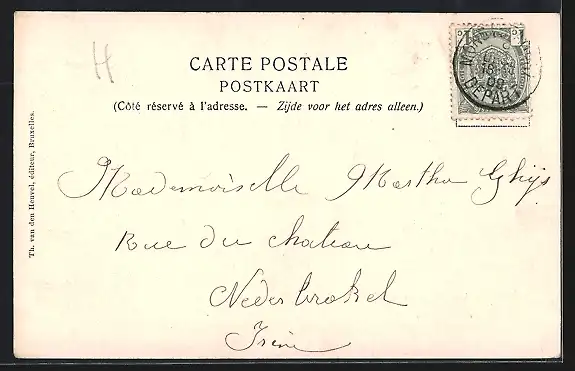 H
CARTE POSTALE
POSTKAART
(Côté réservé à l'adresse. — Zijde voor het adres alleen.)
Th. van den Heuvel, éditeur, Bruxelles.
1 1
DEPART
Mademoiselle Martha Ghys
Rue du chateau
Nederbrakel
Irène